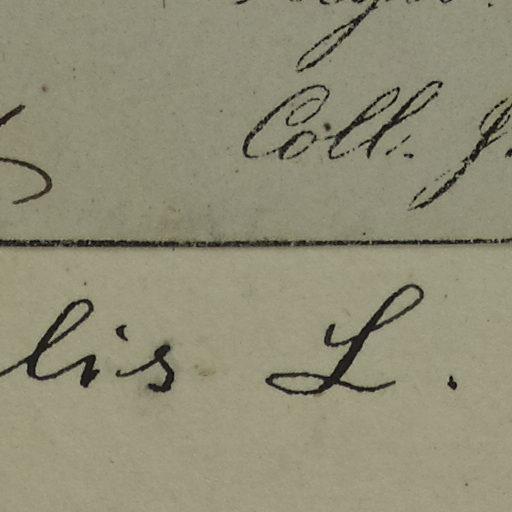 Coll. J.
lis L.